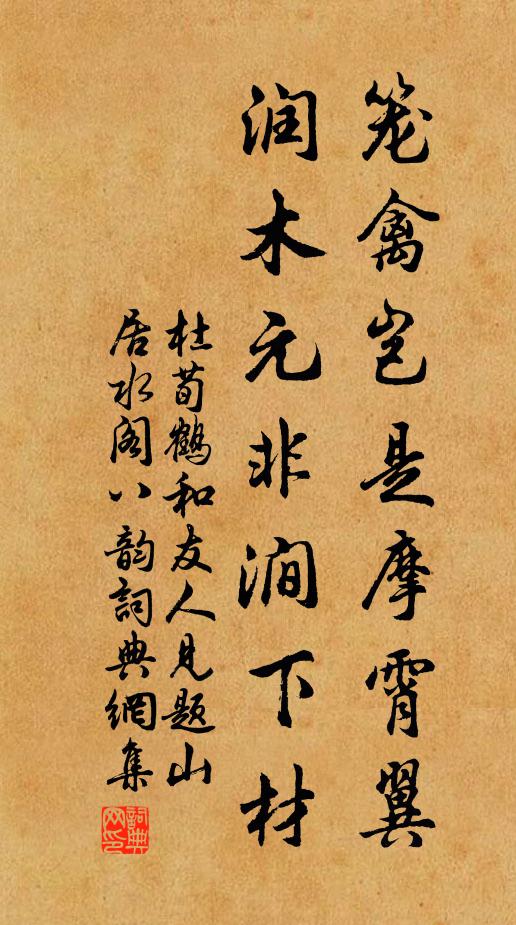 笼禽岂是摩霄翼
润木元非涧下材
杜荀鹤和友人见题山
居水阁八韵詞典網集
詞典网印